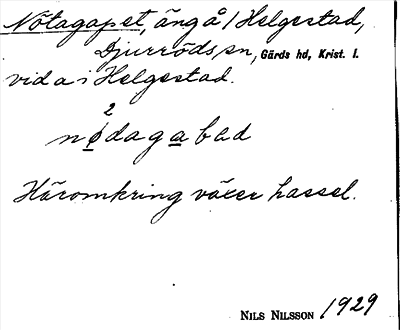 Nötagapet, äng å / Helgestad,
Djurröds sn, Gärds hd, Krist. l.
vid a i Helgestad.
2
nødagabad
Häromkring växer hassel.
Nils Nilsson 1929